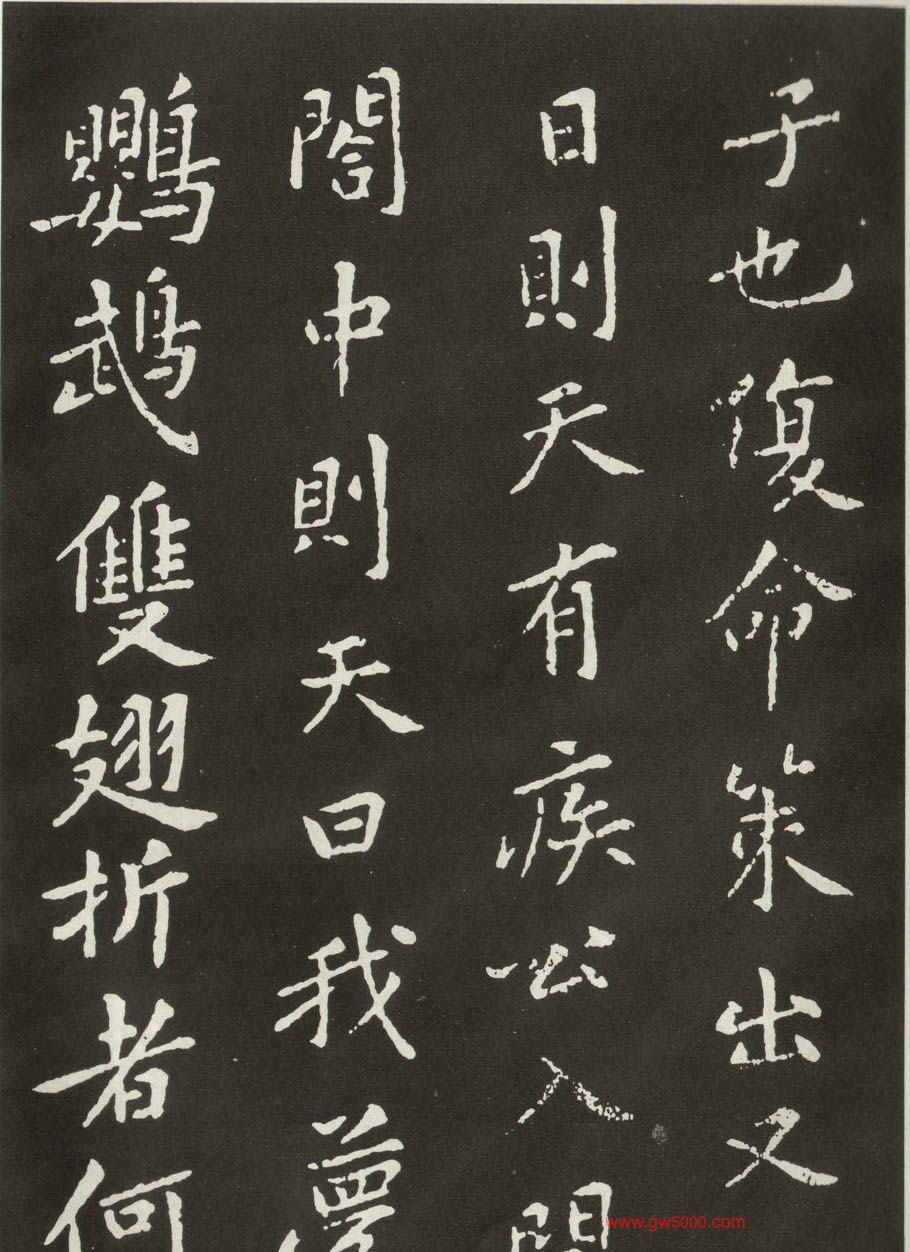 子也復命策出又
日則天有疾公入問
閤中則天曰我夢
鸚鵡雙翅折者何
www.gw5000.com